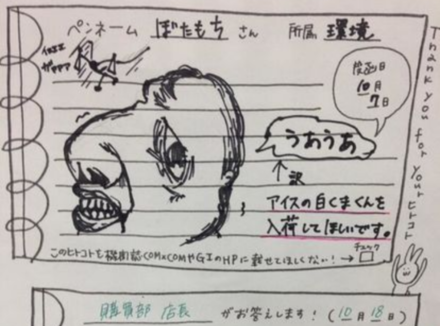 ペンネーム ぼたもち さん 所属 環境
投函日
10月
7日
うあうあ
↑訳
アイスの白くまくんを
入荷してほしいです。
チェック
このヒトコトを機関誌COMxCOMやGIのHPに載せてほしくない!→□
Thank you for your ヒトコト
購買部 店長 がお答えします!(10月18日)